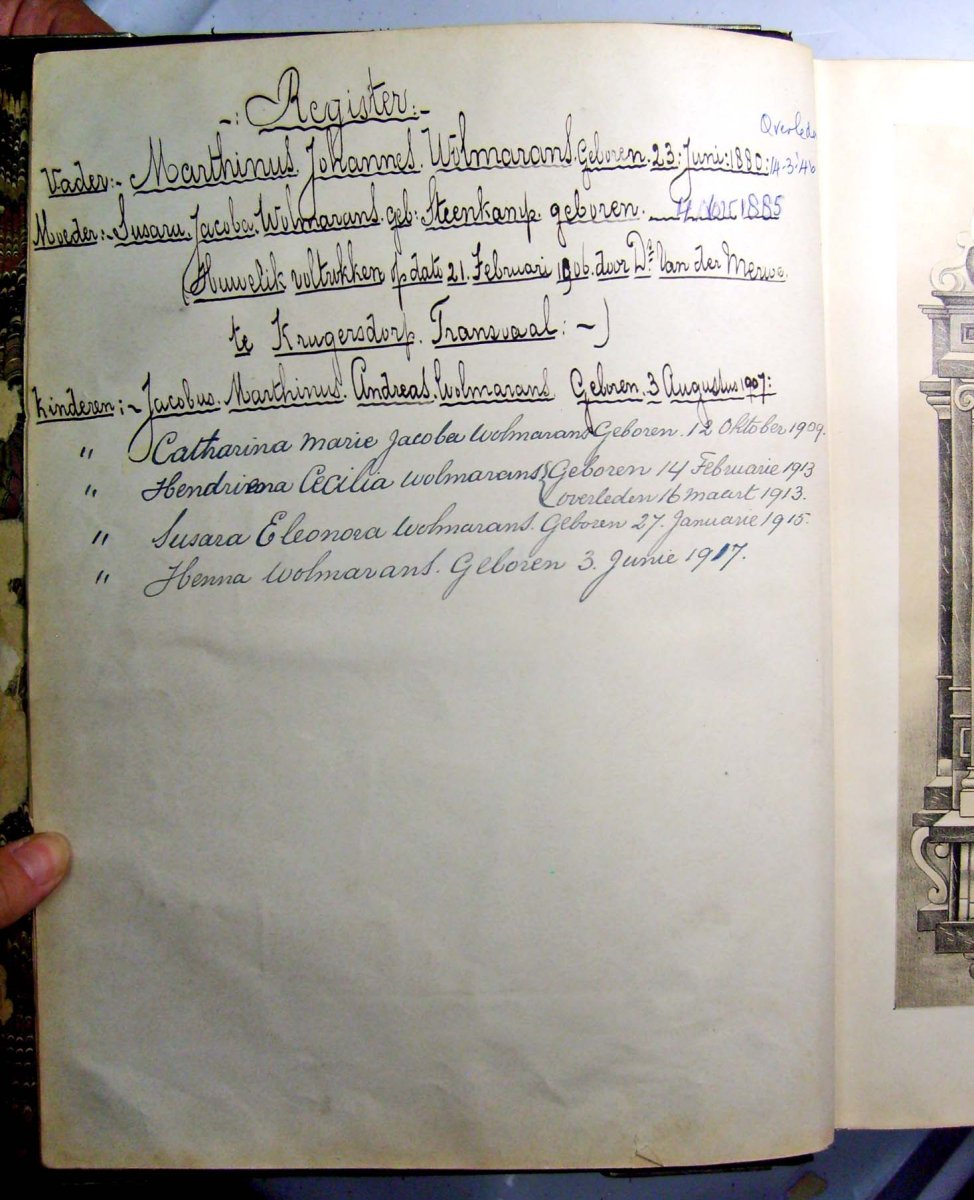 -: Register :-
Overlede
Vader:- Marthinus. Johannes. Wolmarans. Geboren. 23. Juni: 1880: 14-3-'46
Moeder:- Susara. Jacoba. Wolmarans. geb: Steenkamp. geboren. 1885
(Huwelik voltrokken op dato 21. Februari 1906. door Ds. Van der Merwe.
te Krugersdorp. Transvaal: -)
Kinderen:- Jacobus. Marthinus. Andreas. Wolmarans. Geboren. 3 Augustus 1907:
" Catharina Marie Jacoba Wolmarans Geboren. 12 Oktober 1909.
" Hendriena Cecilia Wolmarans { Geboren 14 Februarie 1913
overleden 16 maart 1913.
" Susara Eleonora Wolmarans. Geboren 27. Januarie 1915.
" Henna Wolmarans. Geboren 3. Junie 1917.